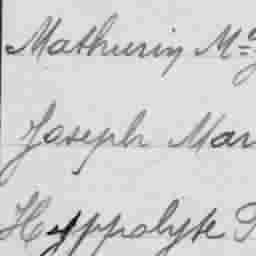 Mathurin M
Joseph Mar
Hyppolyte